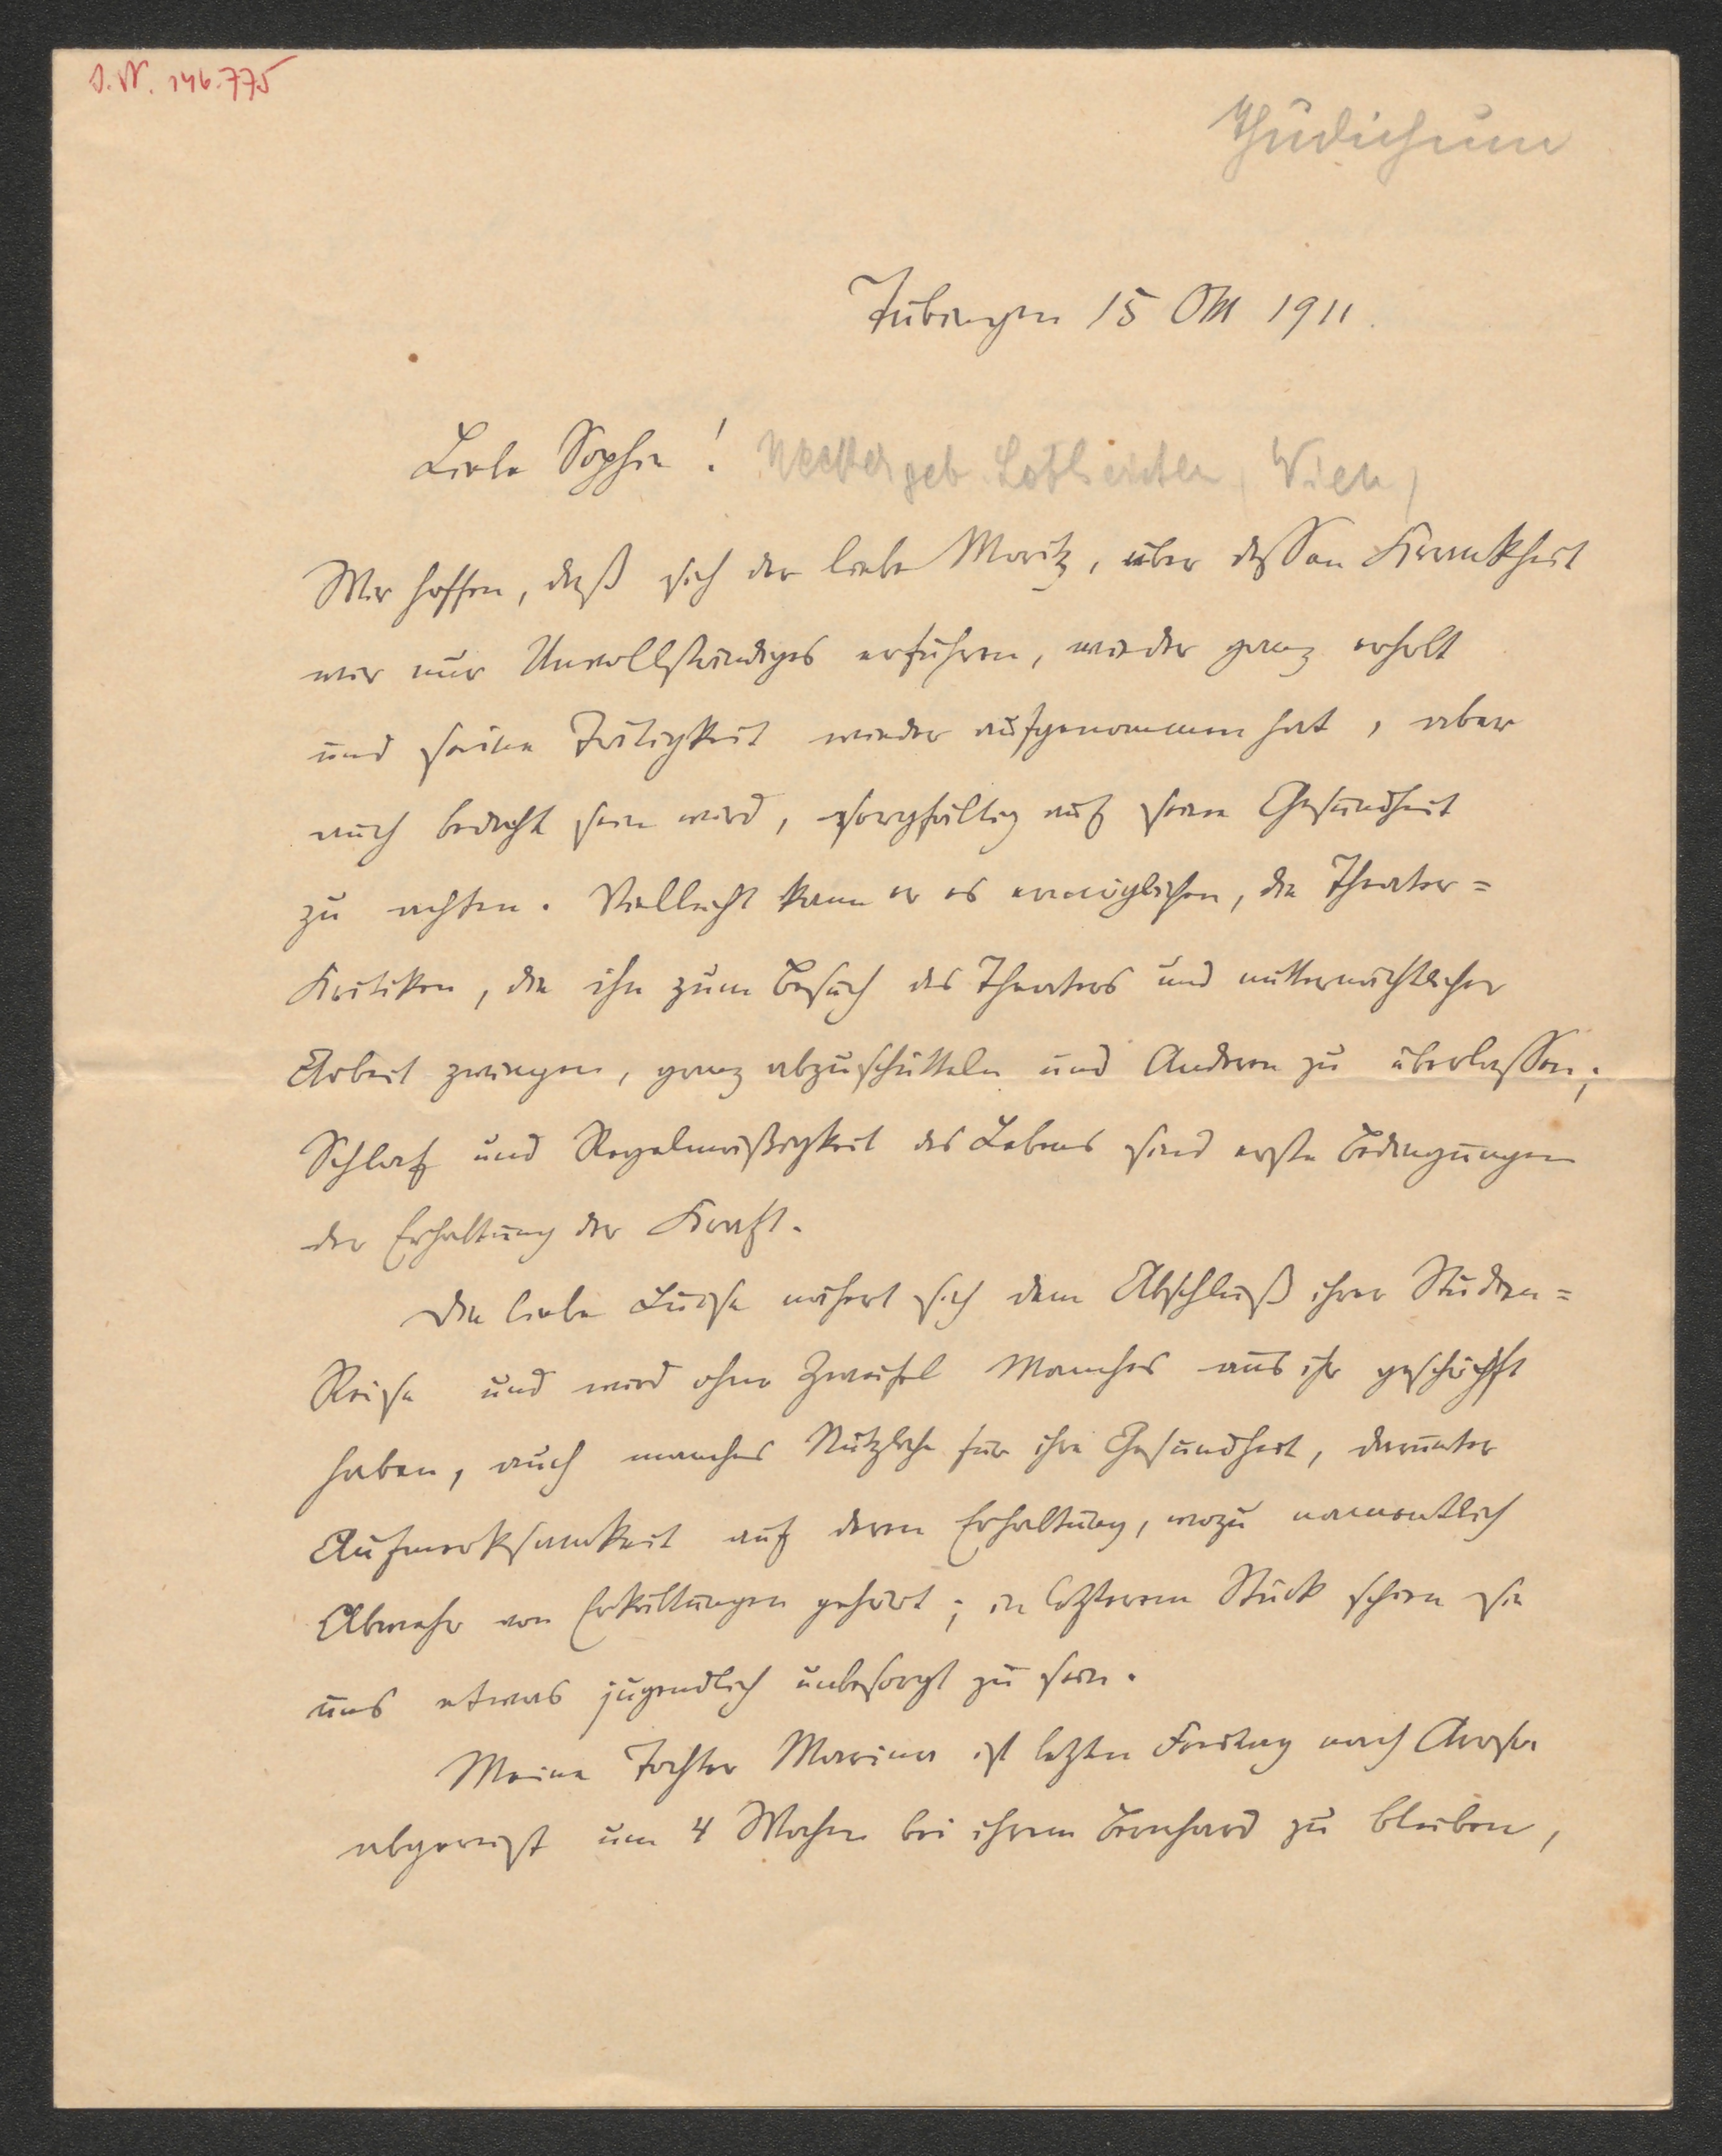 I. N. 146.775
Thudichum
Tübingen 15 Okt 1911.
Liebe Sophie! Necker geb. Wien,
Wir hoffen, daß sich der liebe Moritz, über dessen Krankheit
wir nur Unvollständiges erfuhren, wieder ganz erholt
und seine Tätigkeit wieder aufgenommen hat, aber
auch bedacht sein wird, sorgfältig auf seine Gesundheit
zu achten. Vielleicht kann er es ermöglichen, die Theater=
Kritiken, die ihn zum Besuch des Theaters und mitternächtlicher
Arbeit zwingen, ganz abzuschütteln und Andern zu überlassen;
Schlaf und Regelmäßigkeit des Lebens sind erste Bedingungen
der Erhaltung der Kraft.
Die liebe Luise nähert sich dem Abschluß ihrer Studien=
Reise und wird ohne Zweifel Manches aus ihr geschöpft
haben, auch manches Nützliche für ihre Gesundheit, darunter
Aufmerksamkeit auf deren Erhaltung, wozu namentlich
Abwehr von Erkältungen gehört; in letzterem Stück schien sie
uns etwas jugendlich unbesorgt zu sein.
Meine Tochter Marina ist letzten Freitag nach Arosa
abgereist um 4 Wochen bei ihrem Bernhard zu bleiben,